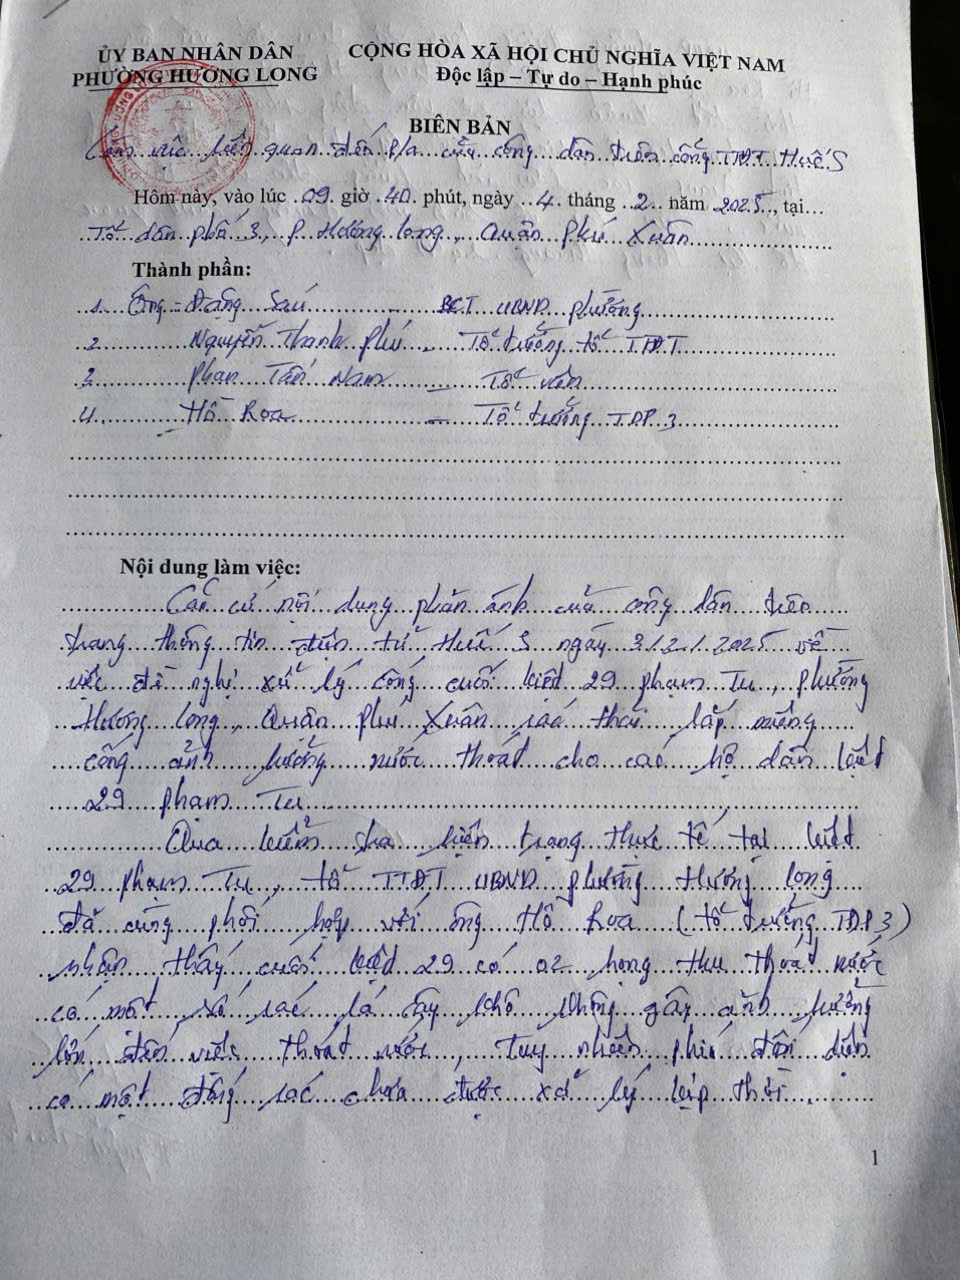 ỦY BAN NHÂN DÂN
PHƯỜNG HƯƠNG LONG
CỘNG HÒA XÃ HỘI CHỦ NGHĨA VIỆT NAM
Độc lập – Tự do – Hạnh phúc
BIÊN BẢN
Làm việc liên quan đến P/a của công dân trên cổng TTĐT Huế S
Hôm nay, vào lúc 09 giờ 40 phút, ngày 4 tháng 2 năm 2025, tại
Tổ dân phố 3, P Hương Long, Quận Phú Xuân
Thành phần:
1. Ông: Đặng Sáu - BCT UBND phường
2. Nguyễn Thanh Phú - Tổ trưởng tổ TTĐT
3. Phan Tấn Nam - Tổ viên
4. Hồ Hoa - Tổ trưởng TDP 3
Nội dung làm việc:
Căn cứ nội dung phản ánh của công dân trên
trang thông tin điện tử Huế S ngày 3/2/2025 về
việc đề nghị xử lý cống cuối kiệt 29 Phạm Tu, phường
Hương Long, Quận Phú Xuân rác thải lấp miệng
cống ảnh hưởng nước thoát cho các hộ dân kiệt
29 Phạm Tu
Qua kiểm tra hiện trạng thực tế tại kiệt
29 Phạm Tu, tổ TTĐT UBND phường Hương Long
đã cùng phối hợp với ông Hồ Hoa (tổ trưởng TDP 3)
nhận thấy cuối kiệt 29 có 02 họng thu thoát nước
có một số rác lá cây khô không gây ảnh hưởng
lớn đến việc thoát nước, tuy nhiên phía đối diện
có một đống rác chưa được xử lý kịp thời
1